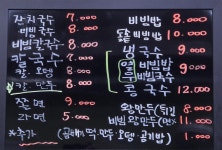 잔치국수 7.000
비빔국수 8.000
비빔칼국수 8.000
칼국수 7.000
칼.오뎅 8.000
칼만두 8.000
쫄면 9.000
라면 5.000
*추가 (곱빼기.떡.만두.오뎅.공기밥) 1.000
비빔밥 8.000
돌솥비빔밥 9.000
냉국수 9.000
열무비빔밥 9.000
열무비빔국수 9.000
콩국수 12.000
왕만두(튀김) 8.000
비빔왕만두(면×) 11.000